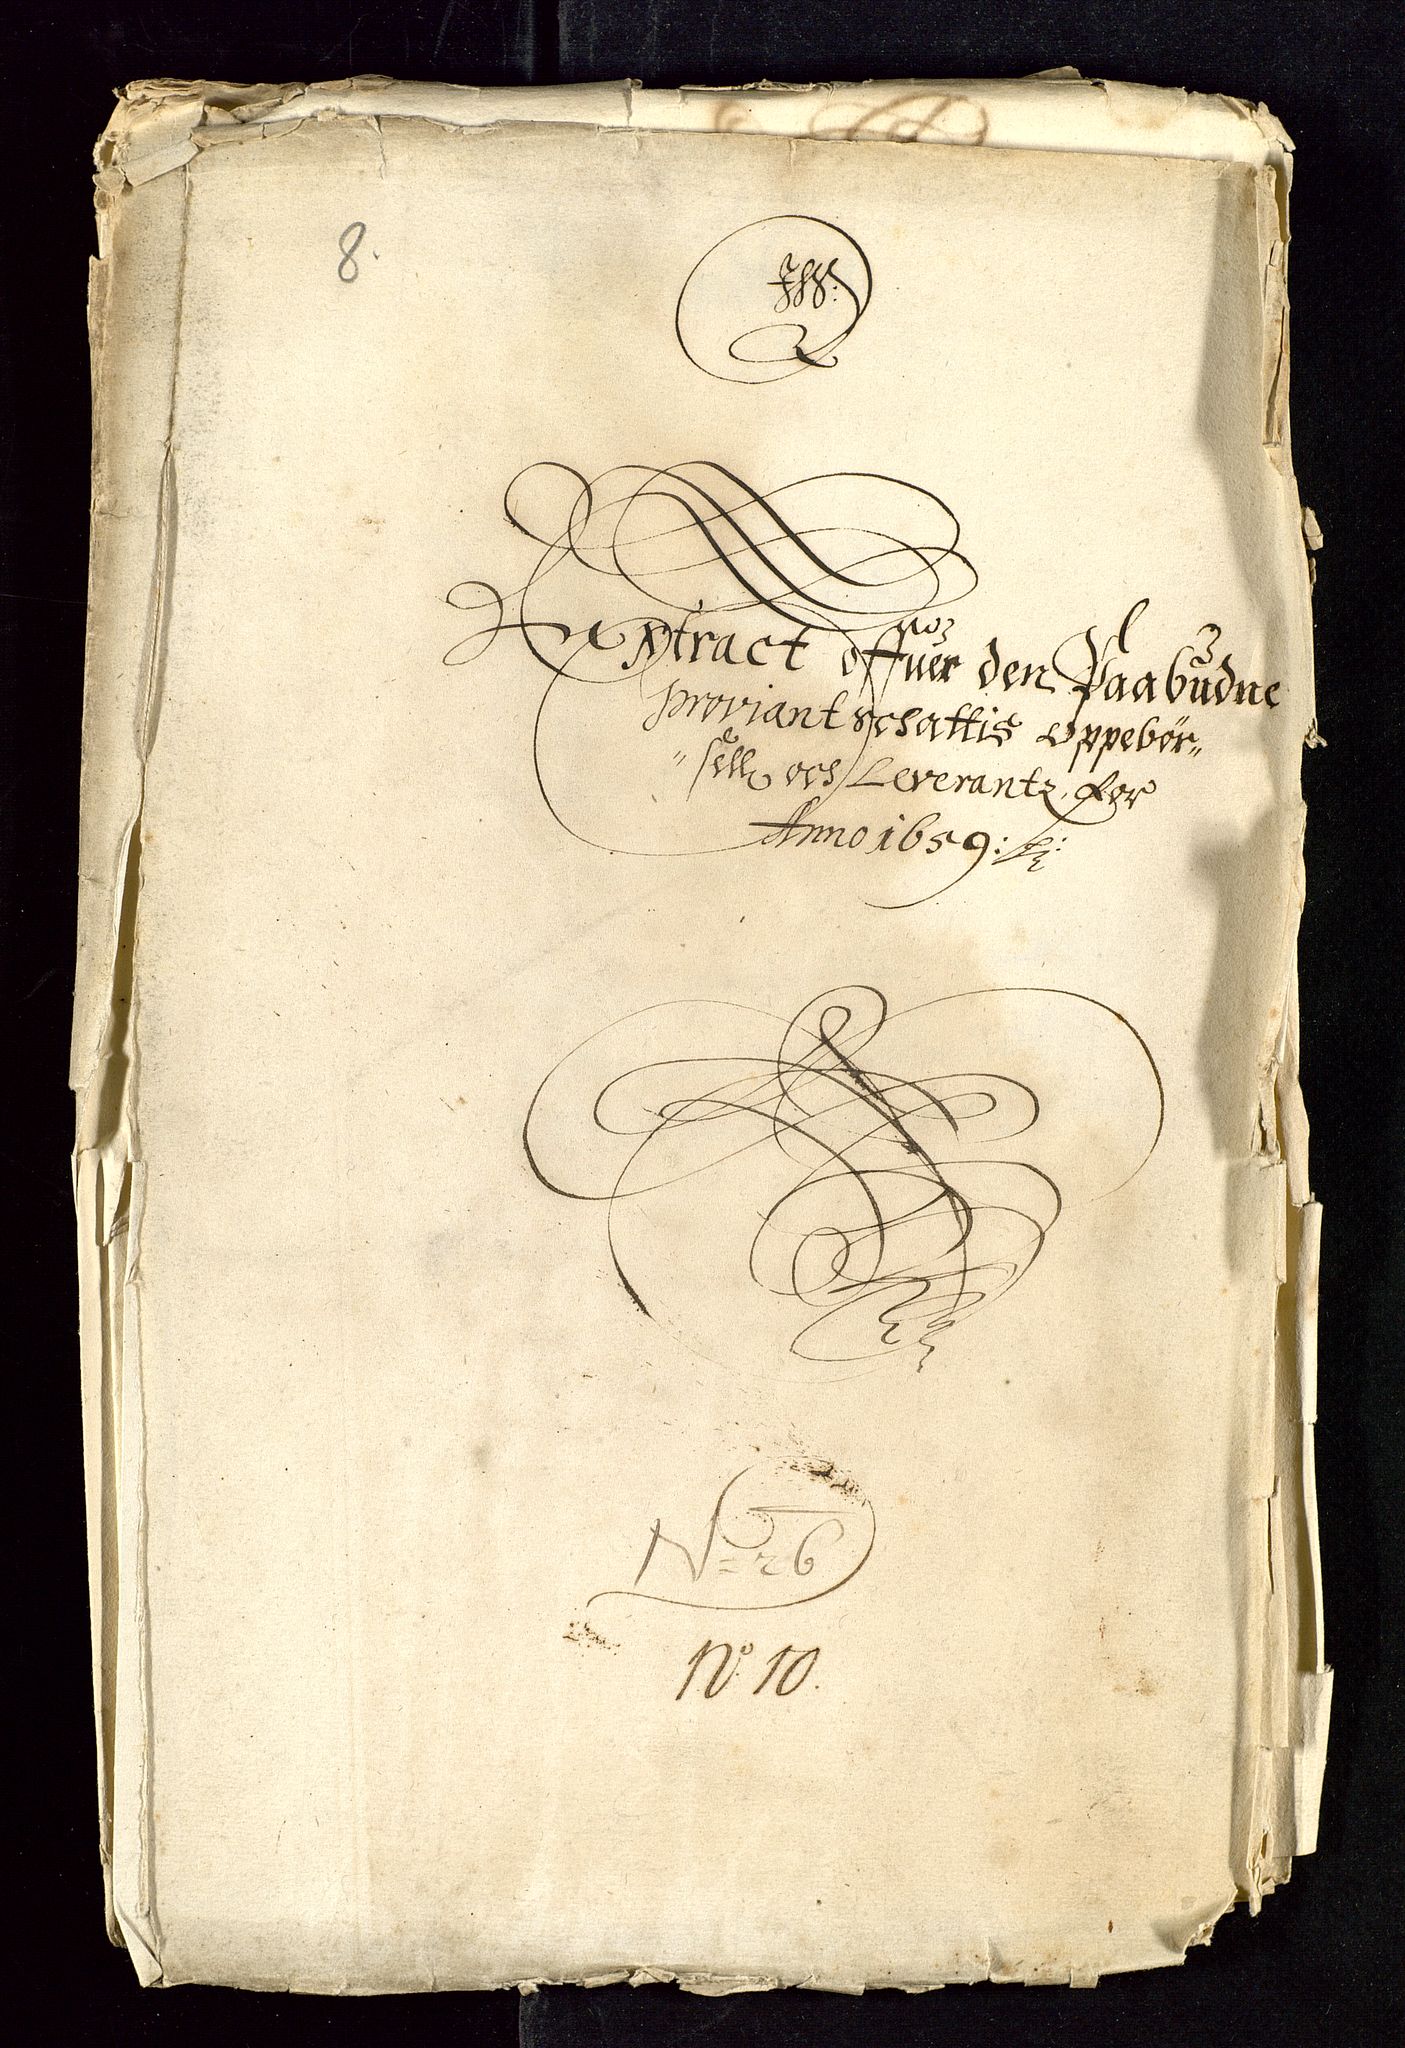 8.
Extract öffuer den Paabudne
proviant schattis Oppebör„
„sell och Leverantz, for
Anno 1659:
N= 26
No. 10.